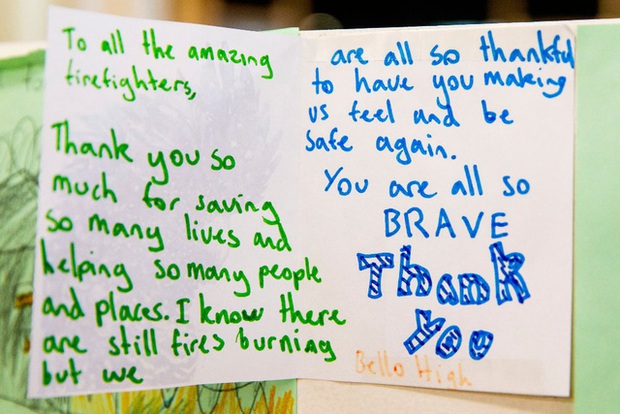 To all the amazing
firefighters,
Thank you so
much for saving
so many lives and
helping so many people
and places. I know there
are still fires burning
but we
are all so thankful
to have you making
us feel and be
safe again.
You are all so
BRAVE
Thank
You
Bello High